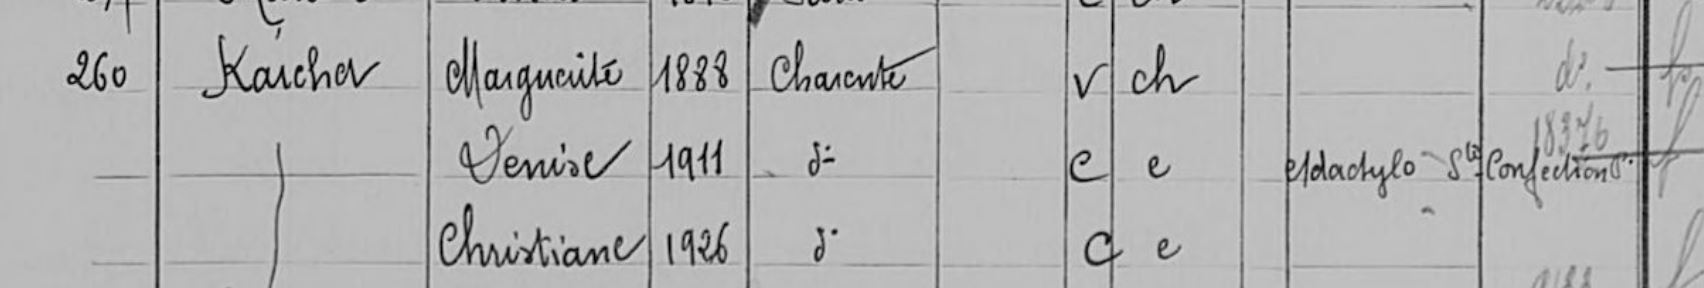 260 Karcher Marguerite 1888 Charente V ch d°
Denise 1911 d° C e Dactylo Sté Confections 18376
Christiane 1926 d° C e